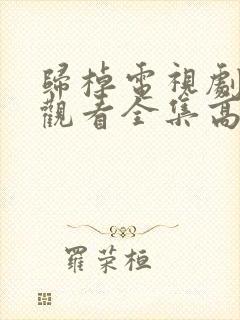 歸棹電視劇
觀看全集高
羅荣桓